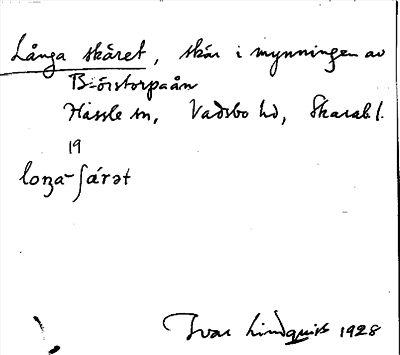 Långa skäret, skär i mynningen av
Börstorpaån
Hassle sn, Vadsbo hd, Skarab l.
19
loŋa-ʃærət
Ivar Lindquist 1928